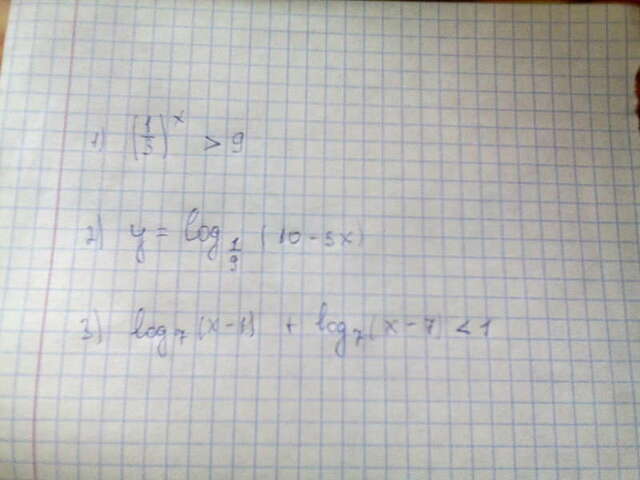 1) (1/3)^x > 9
2) y = log_{1/9} (10 - 5x)
3) log_7 (x - 1) + log_7 (x - 7) < 1